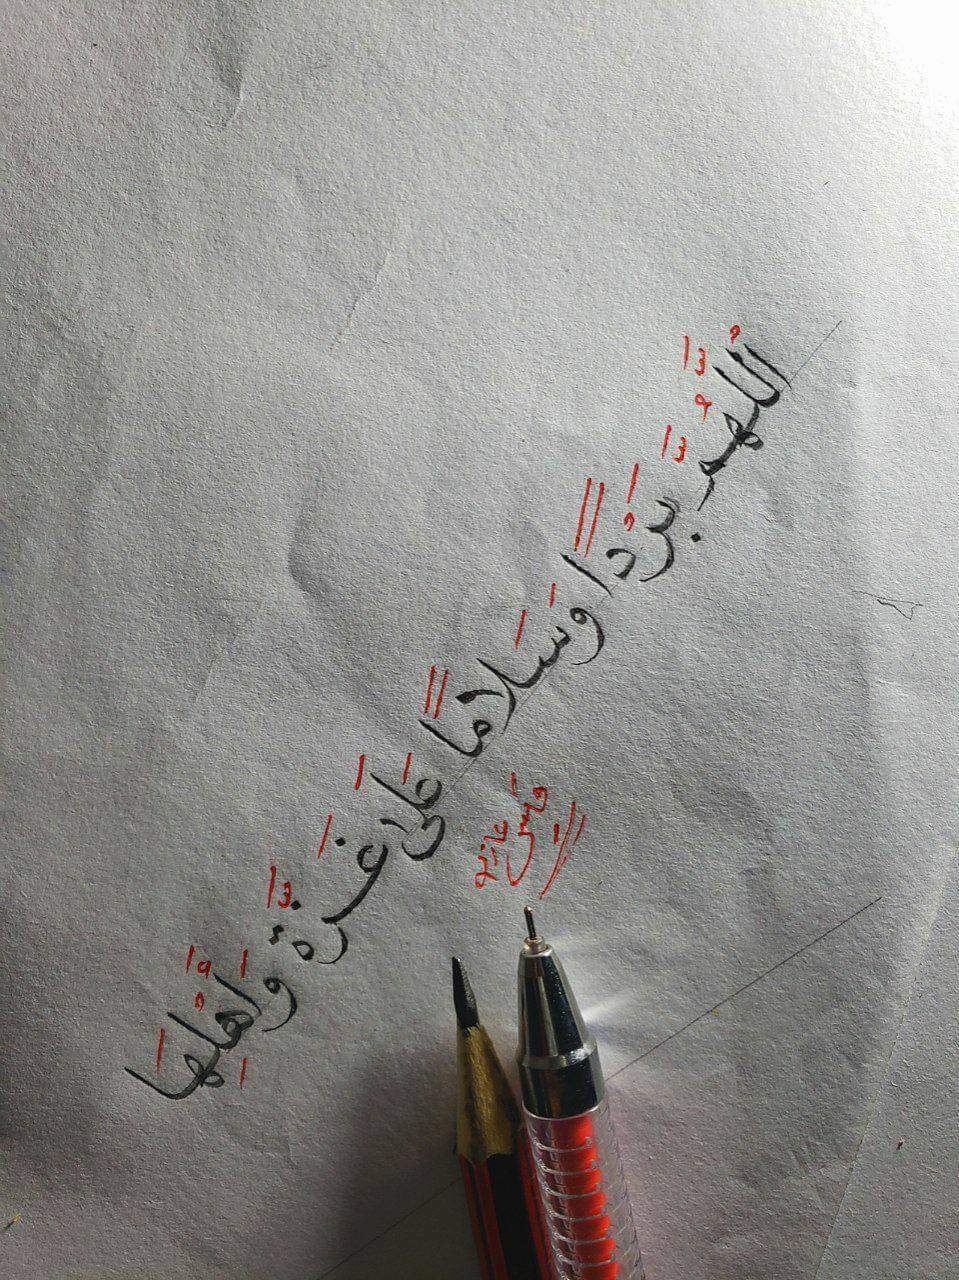 اللّهُمَّ بَرْدًا وَسَلَامًا عَلَى غَزَّةَ وَأَهْلِهَا